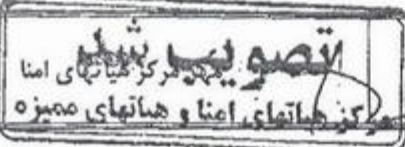 تصویب شد
مهر مرکز هیأتهای امنا
مرکز هیأتهای امنا و هیأتهای ممیزه